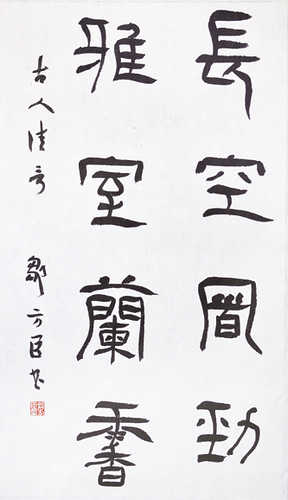 長空勁
雅室蘭香
古人佳句 鄒方臣书